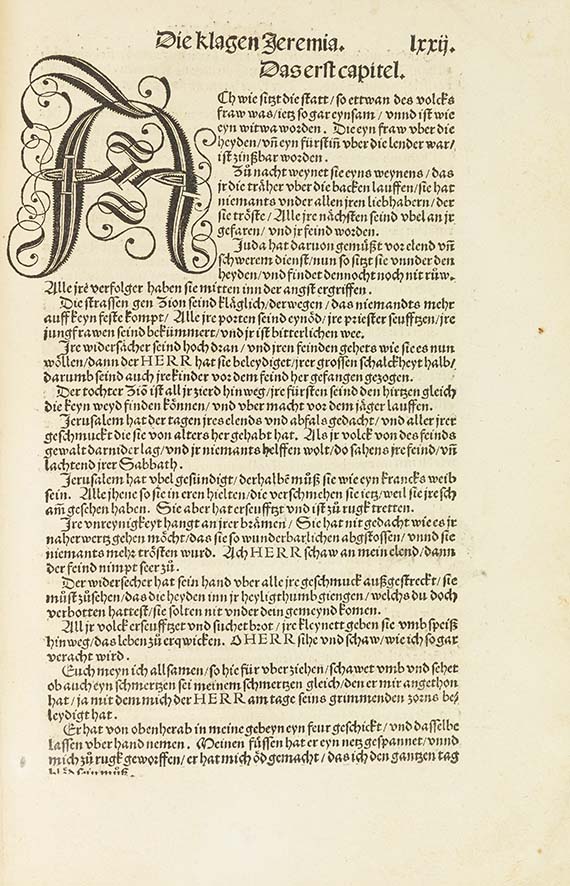 Die klagen Jeremia. lxxij.
Das erst capitel.
ACh wie sitzt die statt / so ettwan des volcks
fraw was / ietz so gar eynsam / vnnd ist wie
eyn witwa worden. Die eyn fraw vber die
heyden / vñ eyn fürstiñ vber die lender war /
ist zinßbar worden.
Zů nacht weynet sie eyns weynens / das
jr die träher vber die backen lauffen / sie hat
niemants vnder allen jren liebhabern / der
sie tröste / Alle jre nächsten seind vbel an jr
gefaren / vnd jr feind worden.
Juda hat daruon gemüßt vor elend vñ
schwerem dienst / nun so sitzt sie vnnder den
heyden / vnd findet dennocht noch nit růw.
Alle jrē verfolger haben sie mitten inn der angst ergriffen.
Die strassen gen Zion seind kläglich / derwegen / das niemandts mehr
auff keyn feste kompt / Alle jre porten seind eynöd / jre priester seufftzen / jre
jungfrawen seind bekümmert / vnd jr ist bitterlichen wee.
Jre widersächer seind hoch dran / vnd jren feinden gehets wie sie es nun
wöllen / dann der HERR hat sie beleydiget / jrer grossen schalckheyt halb /
darumb seind auch jre kinder vor dem feind her gefangen gezogen.
Der tochter Ziō ist all jr zierd hinweg / jre fürsten seind den hirtzen gleich
die keyn weyd finden können / vnd vber macht vor dem jäger lauffen.
Jerusalem hat der tagen jres elends vnd abfals gedacht / vnd aller jrer
geschmuckt die sie von alters her gehabt hat. Als jr volck von des feinds
gewalt darnider lag / vnd jr niemants helffen wolt / do sahens jre feind / vñ
lachtend jrer Sabbath.
Jerusalem hat vbel gesündigt / derhalbē můß sie wie eyn krancks weib
sein. Alle jhene so sie in eren hielten / die verschmehen sie ietz / weil sie jre sch
am̄ gesehen haben. Sie aber hat erseufftzt vnd ist zů rugk tretten.
Jre vnreynigkeyt hangt an jrer brämen / Sie hat nit gedacht wie es jr
naher wertz gehen möcht / das sie so wunderbarlichen abgstossen / vnnd sie
niemants mehr trösten wurd. Ach HERR schaw an mein elend / dann
der feind nimpt seer zů.
Der widersecher hat sein hand vber alle jre geschmuck außgestreckt / sie
můst zůsehen / das die heyden inn jr heyligthumb giengen / welchs du doch
verbotten hattest / sie solten nit vnder dein gemeynd komen.
All jr volck erseufftzet vnd suchet brot / jre kleynett geben sie vmb speiß
hinweg / das leben zů erqwicken. O HERR sihe vnd schaw / wie ich so gar
veracht wird.
Euch meyn ich allsamen / so hie für vber ziehen / schawet vmb vnd sehet
ob auch eyn schmertzen sei meinem schmertzen gleich / den er mir angethon
hat / ja mit dem mich der HERR am tage seins grimmenden zorns be⸗
leydigt hat.
Er hat von oben herab in meine gebeyn eyn feur geschickt / vnd dasselbe
lassen vber hand nemen. Meinen füssen hat er eyn netz gespannet / vnnd
mich zů rugk geworffen / er hat mich öd gemacht / das ich den gantzen tag